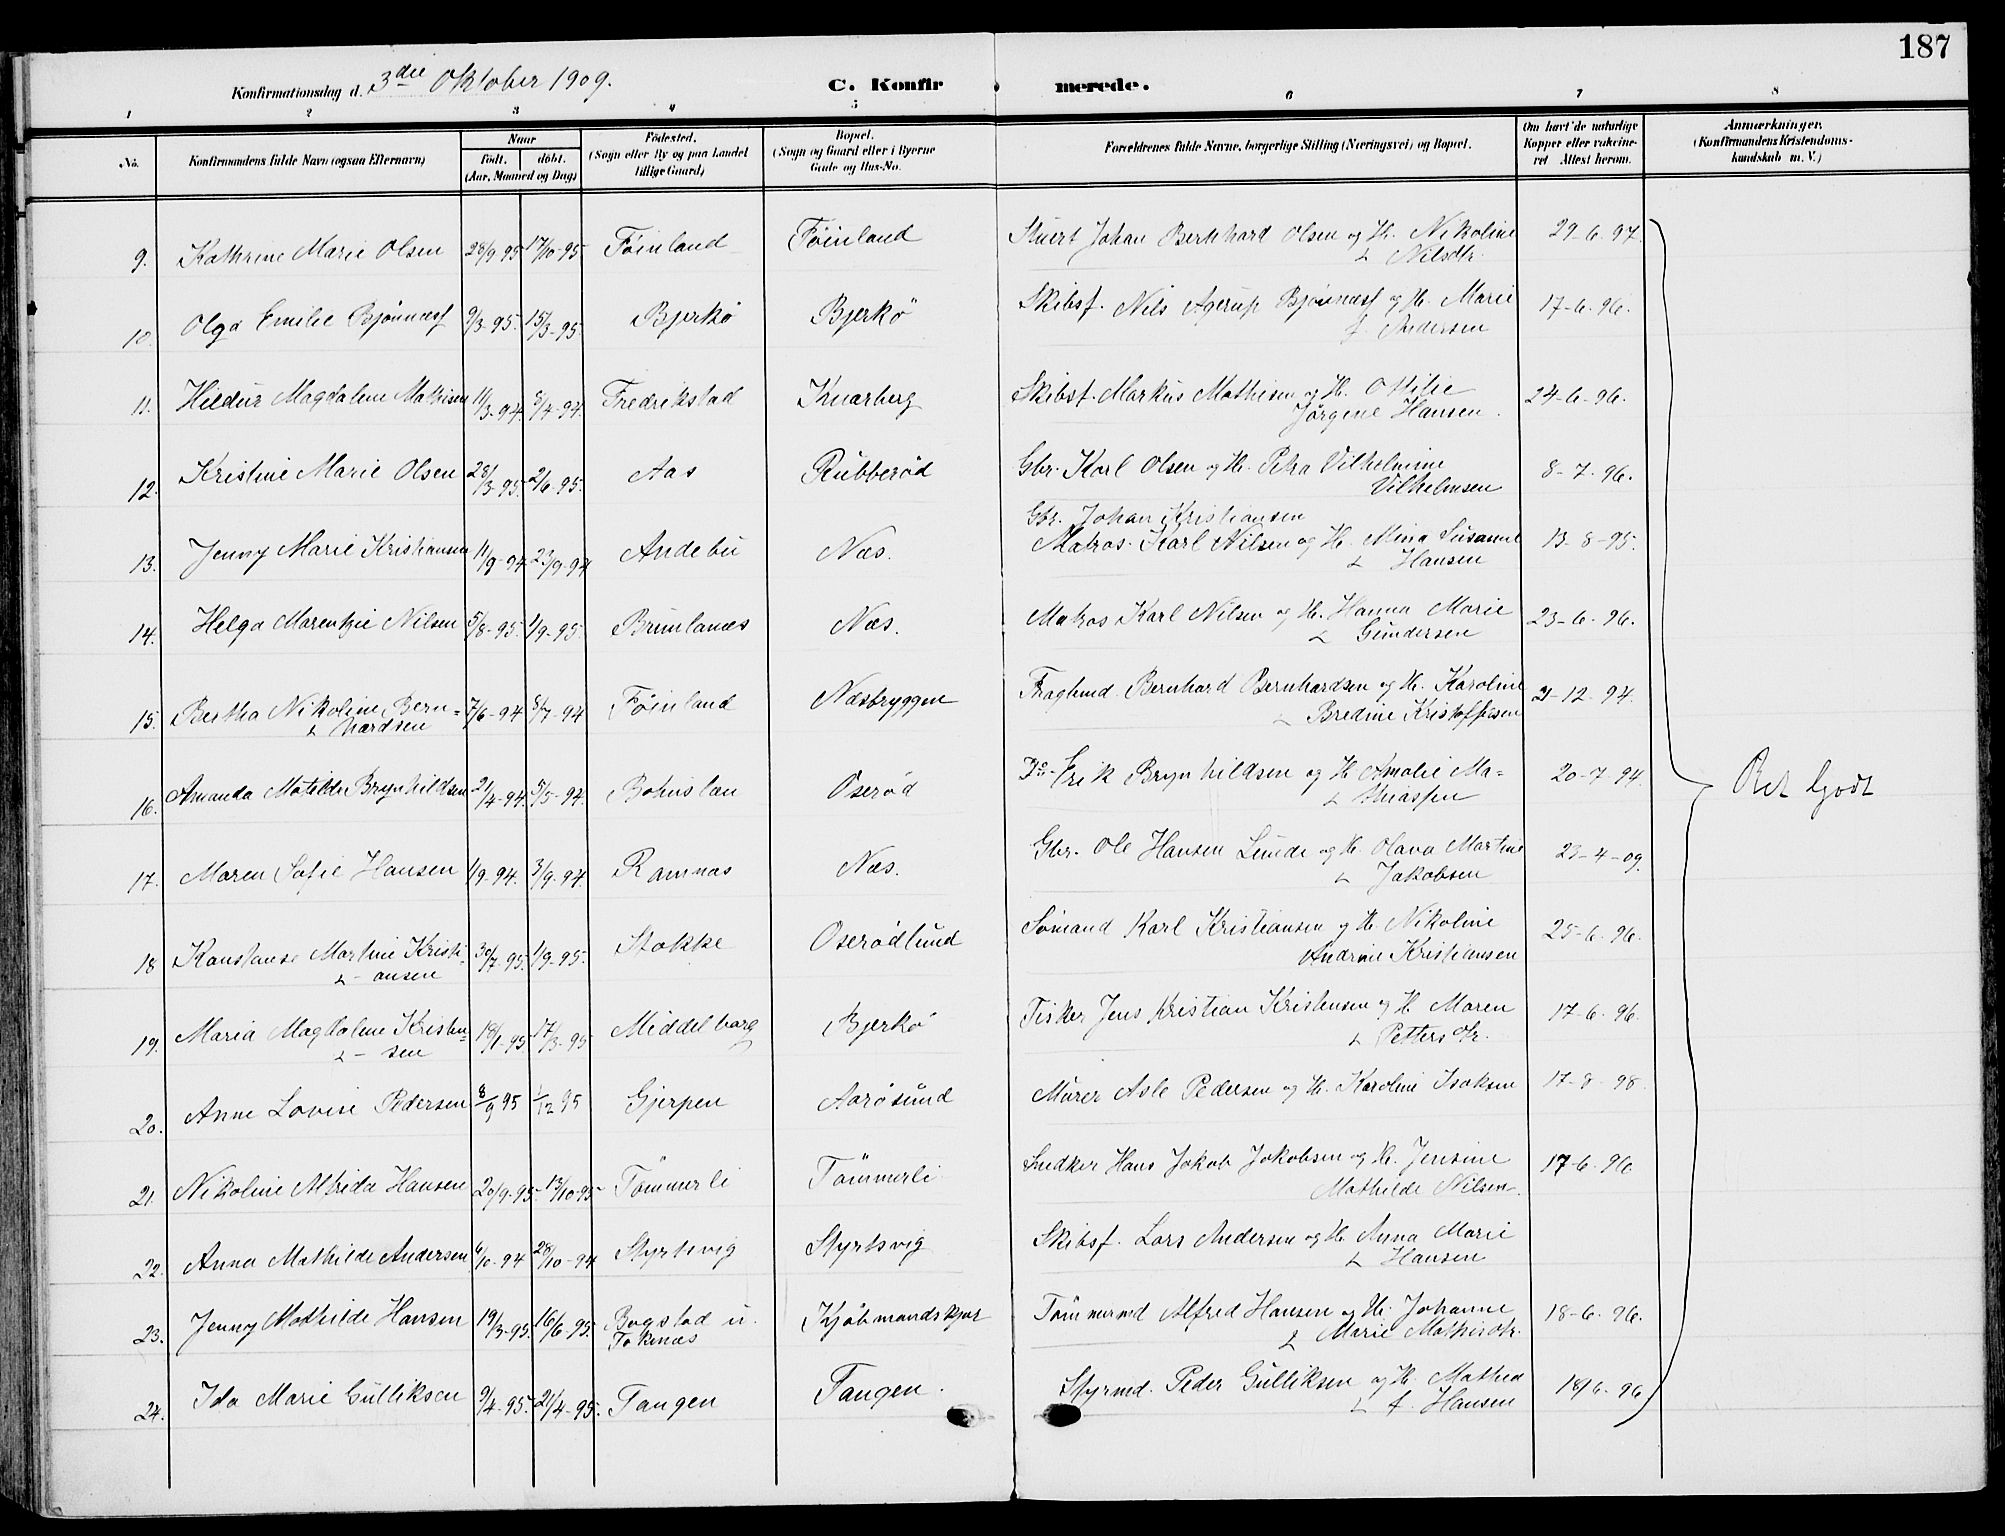 187
Konfirmationsdag d. 3die Oktober 1909.
C. Konfirmerede.
1 2 3 4 5 6 7 8
No.
Konfirmandens fulde Navn (ogsaa Efternavn)
Naar
født. døbt.
(Aar, Maaned og Dag)
Fødested.
(Sogn eller By og paa Landet
tillige Gaard)
Bopæl.
(Sogn og Gaard eller i Byerne
Gade og Hus-No.
Forældrenes fulde Navne, borgerlige Stilling (Næringsvei) og Bopæl.
Om havt de naturlige
Kopper eller vakcine-
ret Attest herom.
Anmærkninger.
(Konfirmandens Kristendoms-
kundskab m. V.)
9. Kathrine Marie Olsen 28/9-95 17/10-95 Föinland Föinland Johan Bernhard Olsen og H. Nikoline 29-6-97.
Nilsdtr.
10. Olga Emilie Bjönnæss 9/3-95. 15/3-95 Bjerkö Bjerkö Skibsf. Nils Agerup Bjönnæss og H. Marie 17-6-96.
f. Andersen
11. Hildur Magdalene Mathisen 11/3-94 8/4-94. Fredrikstad Knarberg Skibsf. Markus Mathisen og H. Otilie 24-6-96.
Jörgine Hansen.
12. Kristine Marie Olsen 28/3-95. 2/6-95. Aas Rubberöd Gbr. Karl Olsen og H. Petra Vilhelmine 8-7-96.
Vilhelmsen
Gbr. Johan Kristiansen
13. Jenny Marie Kristiansen 11/9-94 23/9-94 Andebu Næs. Matros. Karl Nilsen og H. Mina Susanne 13-8-95.
Hansen
14. Helga Marentzie Nilsen 5/8-95. 1/9-95. Brunlanæs Næs. Matros Karl Nilsen og H. Hanna Marie 23-6-96.
Gundersen
15. Bertha Nikoline Bern= 7/6-94 8/7-94 Föinland Næsbryggen Bernhard Bernhardsen og H. Karoline 21-12-94.
hardsen Bredine Kristoffersen
16. Amanda Matilde Brynhildsen 21/4-94. 5/5-94. Bohuslæn Oseröd Do. Erik Brynhildsen og H. Amalie Ma= 20-7 94.
thiassen
Ret Godt
17. Maren Sofie Hansen 1/9-94. 3/9-94. Ramnæs Næs. Gbr. Ole Hansen Lunde og H. Olava Martine 23-4-09.
Jakobsen
18 Konstanse Martine Kristi- 30/7-95. 1/9-95. Stokke Oserödlund Sömand Karl Kristiansen og H. Nikoline 25-6-96.
ansen Andrine Kristiansen
19. Maria Magdalene Kristen= 18/1-95 17/3-95 Middelborg Bjerkö Fisker Jens Kristian Kristensen og H. Maren 17-6-96.
sen Pettersdtr.
20. Anne Lovise Pedersen 8/9 95 1/12 95 Gjerpen Aarösund Murer Asle Pedersen og H. Karoline Isaksen 17-8-98.
21. Nikoline Alfrida Hansen 20/9-95. 13/10-95 Tömmerli Tömmerli Snedker Hans Jakob Jakobsen og H. Jensine 17-6-96
Mathilde Nilsen.
22. Anna Mathilde Andersen 6/10-94 28/10-94 Styrtsvig Styrtsvig Skibsf. Lars Andersen og H. Anna Marie
Hansen
23. Jenny Mathilde Hansen 19/3-95. 16/6-95. Bogstad u. Kjöbmandskjær Tömmermd Alfred Hansen og H. Johanne 18-6-96.
Fokenæs Marie Mathisdtr.
24. Ida Marie Gulliksen 9/4-95. 21/4-95. Tangen Tangen. Styrmd. Peder Gulliksen og H. Mathea 18/6-96
f. Hansen